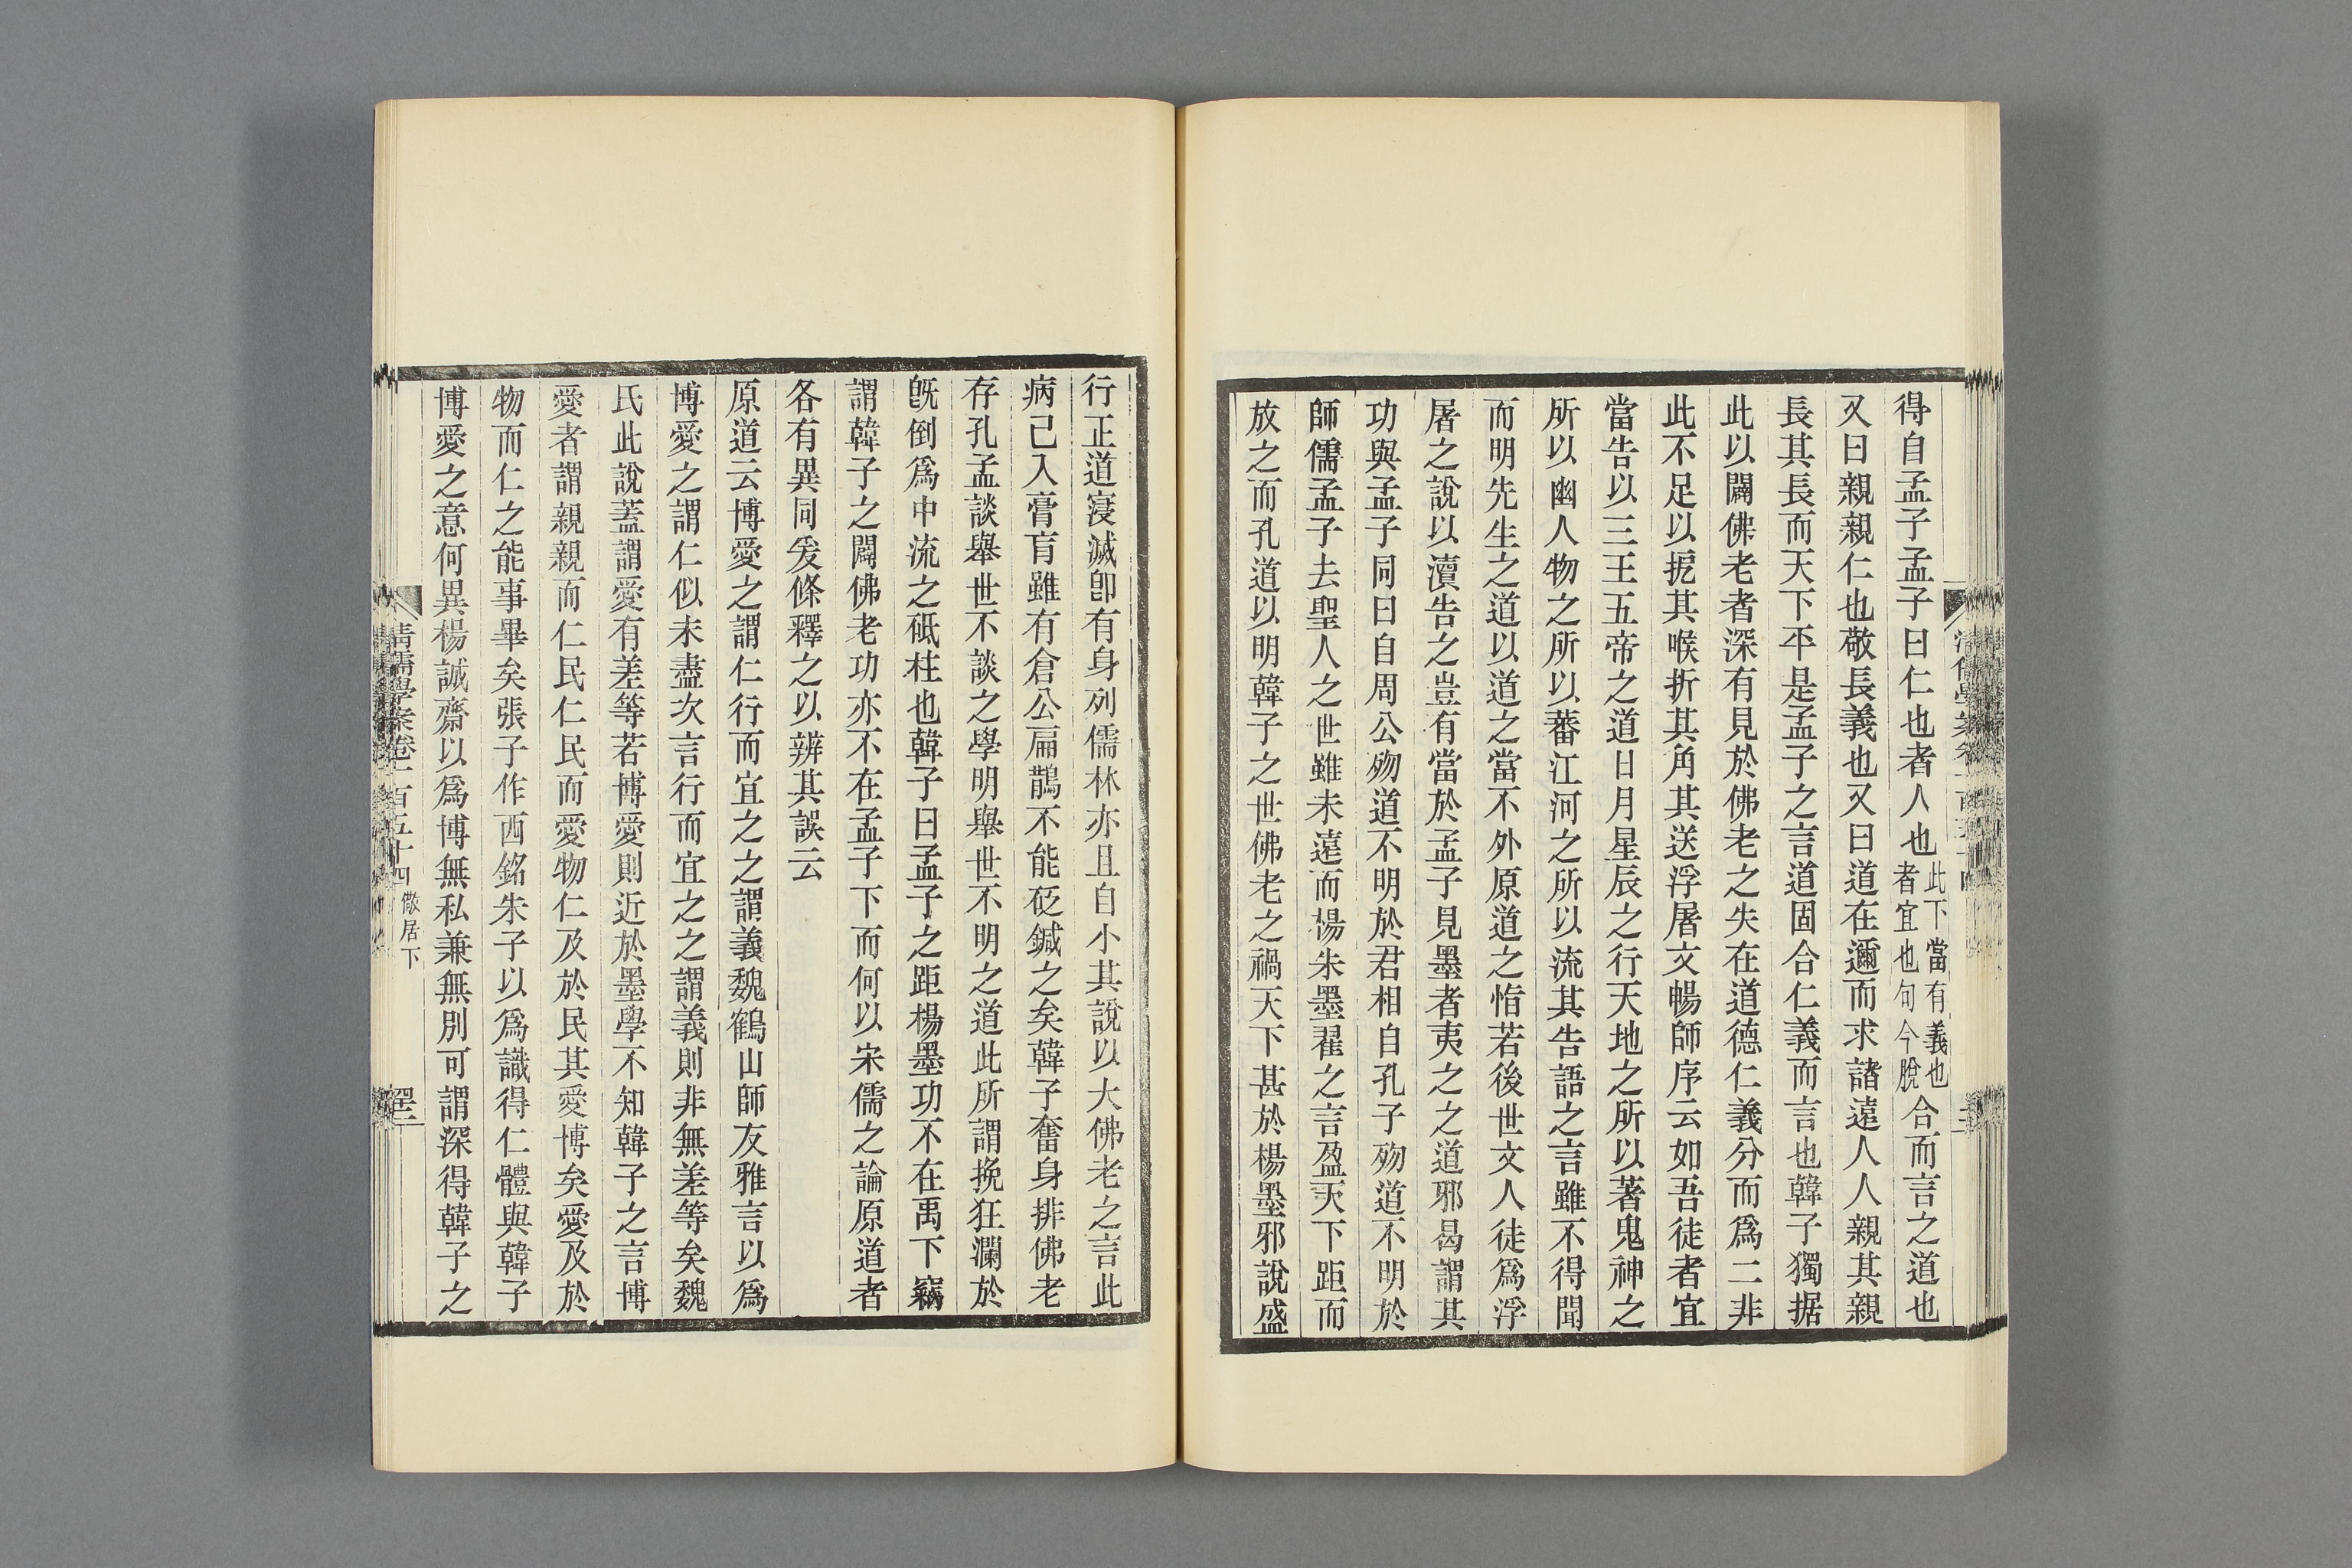 得自孟子孟子曰仁也者人也此下當有義也者宜也句今脫合而言之道也
又曰親親仁也敬長義也又曰道在邇而求諸遠人人親其親
長其長而天下平是孟子之言道固合仁義而言也韓子獨据
此以闢佛老者深有見於佛老之失在道德仁義分而爲二非
此不足以扼其喉折其角其送浮屠文暢師序云如吾徒者宜
當告以三王五帝之道日月星辰之行天地之所以著鬼神之
所以幽人物之所以蕃江河之所以流其告語之言雖不得聞
而明先生之道以道之當不外原道之恉若後世文人徒爲浮
屠之說以瀆告之豈有當於孟子見墨者夷之之道邪曷謂其
功與孟子同曰自周公歾道不明於君相自孔子歾道不明於
師儒孟子去聖人之世雖未遠而楊朱墨翟之言盈天下距而
放之而孔道以明韓子之世佛老之禍天下甚於楊墨邪說盛
行正道寖滅卽有身列儒林亦且自小其說以大佛老之言此
病已入膏肓雖有倉公扁鵲不能砭鍼之矣韓子奮身排佛老
存孔孟談舉世不談之學明舉世不明之道此所謂挽狂瀾於
旣倒爲中流之砥柱也韓子曰孟子之距楊墨功不在禹下竊
謂韓子之闢佛老功亦不在孟子下而何以宋儒之論原道者
各有異同爰條釋之以辨其誤云
原道云博愛之謂仁行而宜之之謂義魏鶴山師友雅言以爲
博愛之謂仁似未盡次言行而宜之之謂義則非無差等矣魏
氏此說蓋謂愛有差等若博愛則近於墨學不知韓子之言博
愛者謂親親而仁民仁民而愛物仁及於民其愛博矣愛及於
物而仁之能事畢矣張子作西銘朱子以爲識得仁體與韓子
博愛之意何異楊誠齋以爲博無私兼無別可謂深得韓子之
清儒學案卷一百五十四 儆居下